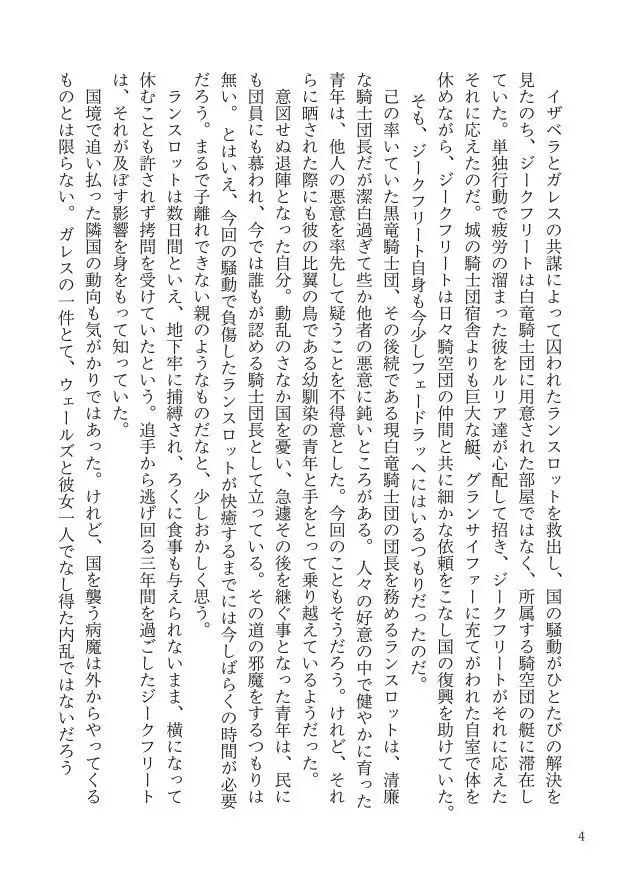 イザベラとガレスの共謀によって囚われたランスロットを救出し、国の騒動がひとたびの解決を
見たのち、ジークフリートは白竜騎士団に用意された部屋ではなく、所属する騎空団の艇に滞在し
ていた。単独行動で疲労の溜まった彼をルリア達が心配して招き、ジークフリートがそれに応えた
それに応えたのだ。城の騎士団宿舎よりも巨大な艇、グランサイファーに充てがわれた自室で体を
休めながら、ジークフリートは日々騎空団の仲間と共に細かな依頼をこなし国の復興を助けていた。
　そも、ジークフリート自身も今少しフェードラッヘにはいるつもりだったのだ。
　己の率いていた黒竜騎士団、その後続である現白竜騎士団の団長を務めるランスロットは、清廉
な騎士団長だが潔白過ぎて些か他者の悪意に鈍いところがある。人々の好意の中で健やかに育った
青年は、他人の悪意を率先して疑うことを不得意とした。今回のこともそうだろう。けれど、それ
らに晒された際にも彼の比翼の鳥である幼馴染の青年と手をとって乗り越えているようだった。
　意図せぬ退陣となった自分。動乱のさなか国を憂い、急遽その後を継ぐ事となった青年は、民に
も団員にも慕われ、今では誰もが認める騎士団長として立っている。その道の邪魔をするつもりは
無い。とはいえ、今回の騒動で負傷したランスロットが快癒するまでには今しばらくの時間が必要
だろう。まるで子離れできない親のようなものだなと、少しおかしく思う。
　ランスロットは数日間といえ、地下牢に捕縛され、ろくに食事も与えられないまま、横になって
休むことも許されず拷問を受けていたという。追手から逃げ回る三年間を過ごしたジークフリート
は、それが及ぼす影響を身をもって知っていた。
　国境で追い払った隣国の動向も気がかりではあった。けれど、国を襲う病魔は外からやってくる
ものとは限らない。ガレスの一件とて、ウェールズと彼女一人でなし得た内乱ではないだろう
4